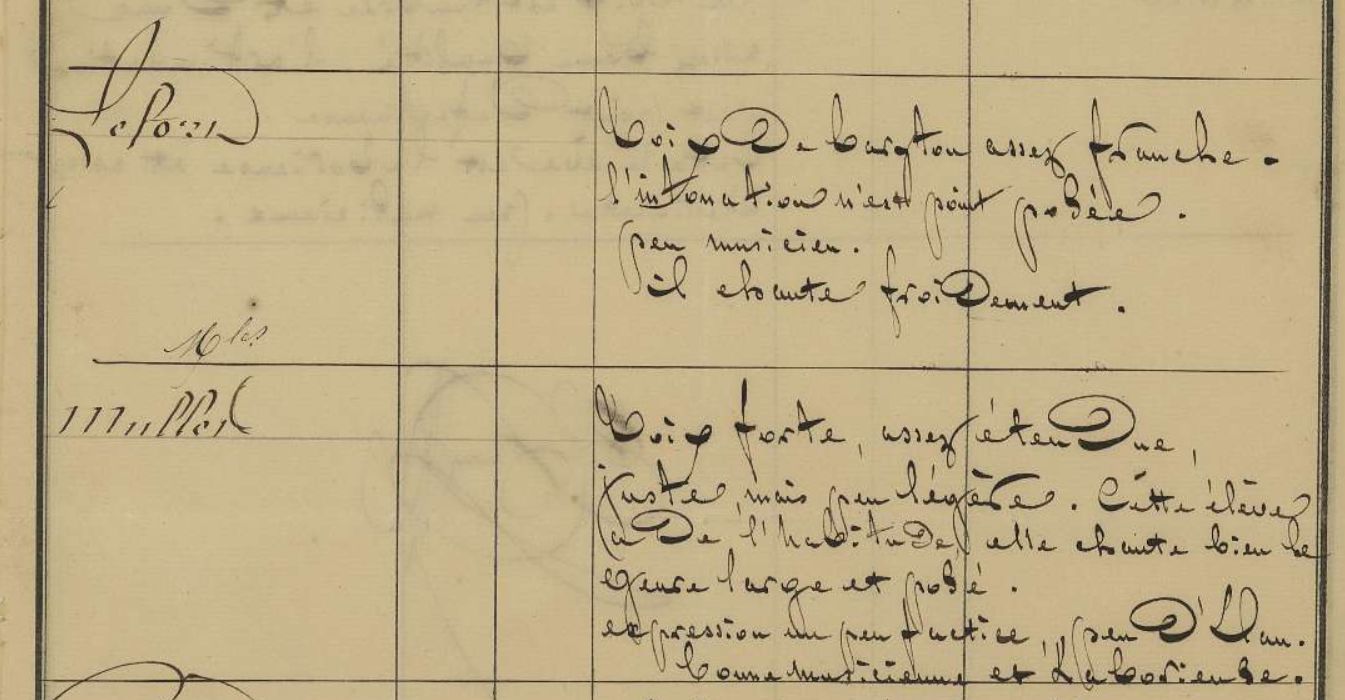 Voix de baryton assez franche.
l'intonation n'est point posée.
peu musicien.
il chante froidement.
Mles
Muller
Voix forte, assez étendue,
juste, mais peu légère. Cette élève
a de l'habitude, elle chante bien le
genre large et posé.
expression un peu factice, peu d'élan.
bonne musicienne et laborieuse.